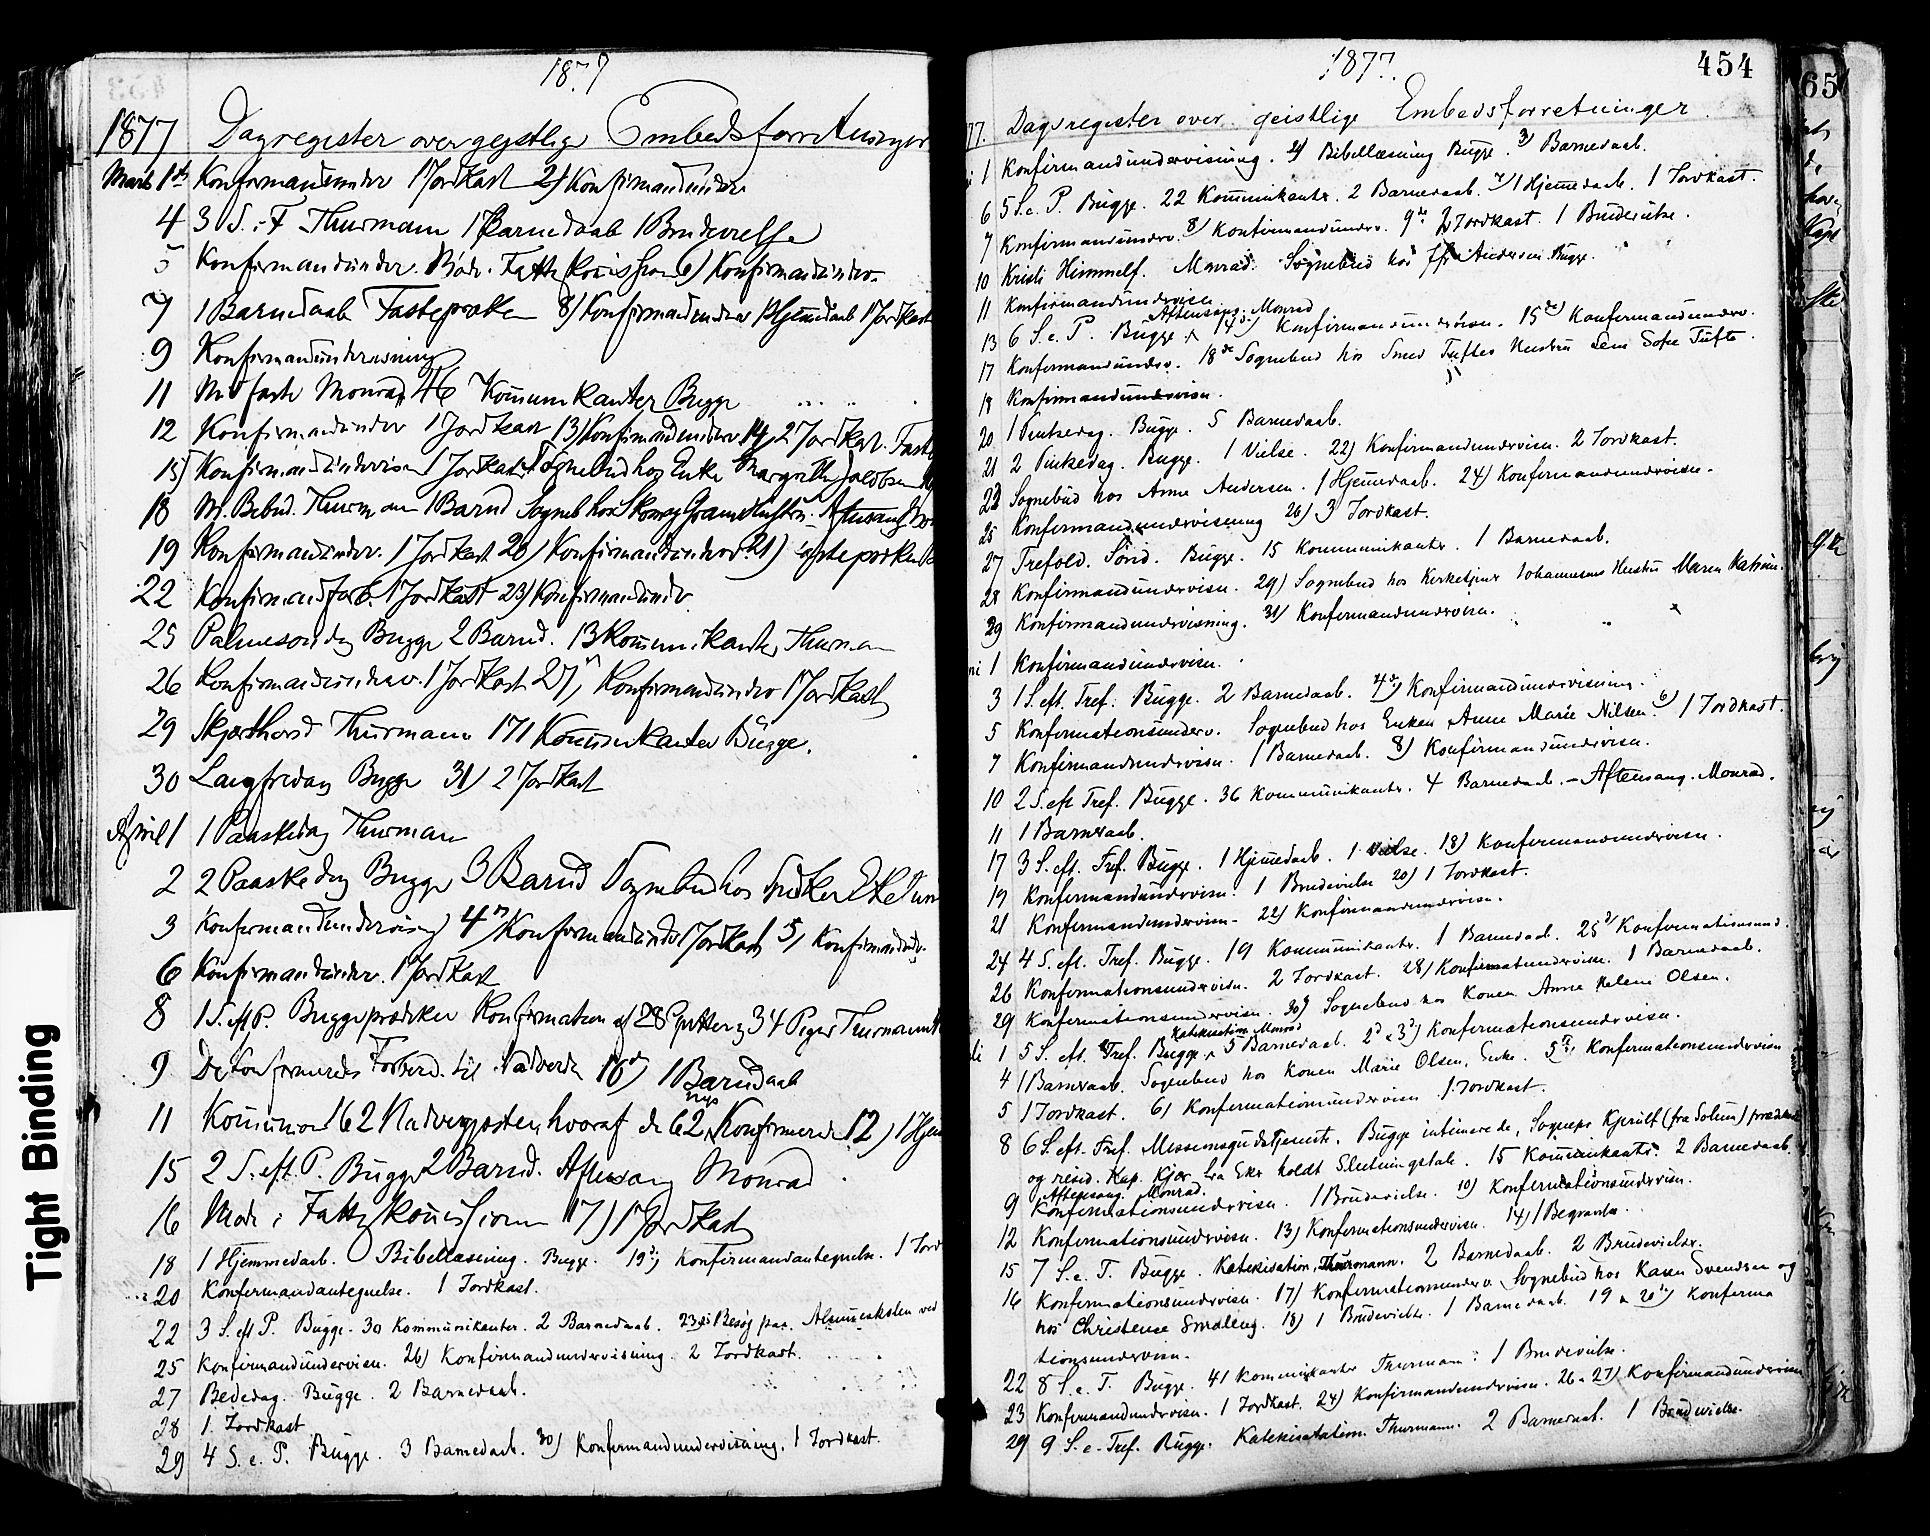 1877
1877 Dagregister over gejstlige Embedsforretninger
Marts 1ste Konfirmandunder 1 Jordkast 2) Konfirmandunder
4 3 S. i F Thurmann 1 Barnedaab 1 Brudevielse
5 Konfirmandunder. Fattigkomission 6) Konfirmandunderv.
7 1 Barnedaab Fastepræken 8) Konfirmandunder 1 Hjemedaab 1 Jordkast
9 Konfirmandundervisning
11 Midfaste Monrad 46 Komunikanter Bugge
12 Konfirmandunder 1 Jordkast 13) Konfirmandunderv 14) 2 Jordkast. Faste
15 Konfirmandundervisn 1 Jordkast Sognebud hos Enke Margrethe Jacobsen
18 M. Bebud. Thurmann 1 Barnd Sogneb hos Aftensang
19 Konfirmandunder. 1 Jordkast 20) Konfirmandunderv. 21) Fastepræken
22 Konfirmandforb. 1 Jordkast 23) Konfirmandundv.
25 Palmesondag Bugge 2 Barnd. 13 Komunikanter Thurmann
26 Konfirmandunderv. 1 Jordkast 27) Konfirmandunderv 1 Jordkast
29 Skjærthorsd Thurmann 171 Komunikanter Bugge.
30 Langfredag Bugge 31) 2 Jordkast
April 1 1 Paaskedag Thurmann
2 2 Paaskedag Bugge 3 Barnd Sognebud hos
3 Konfirmandundervisning 4) Konfirmandunder 1 Jordkast 5) Konfirmandundv.
6 Konfirmandunder. 1 Jordkast
8 1 S. eft P. Bugge prædiker Konfirmation af 28 Gutter og 34 Piger Thurmann
9 De konfirmeredes Forbered. til Nadverden 10) 1 Barnedaab
11 Komunion 162 Nadvergjester, hvoraf de 62 nys Konfirmerede 12) 1 Hjem
15 2 S. eft. P. Bugge 2 Barnd. Aftensang Monrad
16 Mode i Fattigkomissionen 17) 1 Jordkast
18 1 Hjemmedaab. Bibellæsning. Bugge. 19) Konfirmandantegnelse. 1 Jord
20 Konfirmandantegnelse. 1 Jordkast.
22 3 S. eft P. Bugge. 30 Kommunikanter. 2 Barnedaab. 23) Besøg paa Almueskolen ved
25 Konfirmandundervisn. 26) Konfirmandundervisning. 2 Jordkast.
27 Bededag. Bugge. 2 Barnedaab.
28 1. Jordkast
29 4 S. e. P. Bugge. 3 Barnedaab. 30) Konfirmandundervisning. 1 Jordkast.
1877. 454
77. Dagsregister over geistlige Embedsforretninger
1 Konfirmandundervisning. 2) Bibellæsning Bugge. 3) Barnedaab.
6 5 S. e. P. Bugge. 22 Kommunikanter. 2 Barnedaab. 1 Hjemedaab. 1 Jordkast.
7 Konfirmandunderv. 8) Konfirmandunderv. 9de 2 Jordkast. 1 Brudevielse.
10 Kristi Himmelf. Monrad. Sognebud hos Andersen Bugge.
11 Konfirmandundervisn.
Aftensang. Monrad
13 6 S. e. P. Bugge 14de) Konfirmandundervisn. 15de) Konfirmandunderv.
17 Konfirmandunderv. 18de Sognebud hos Smed Tuftes Hustru Sofie Tufte.
18 Konfirmandundervisn.
20 1 Pintsedag. Bugge. 5 Barnedaab.
21 2 Pintsedag. Bugge. 1 Vielse. 22) Konfirmandundervisn. 2 Jordkast.
23 Sognebud hos Anne Andersen. 1 Hjemmedaab. 24) Konfirmandundervisn.
25 Konfirmandundervisning 26) 3 Jordkast.
27 Trefold. Sønd. Bugge. 15 Kommunikanter. 1 Barnedaab.
28 Konfirmandundervisn. 29) Sognebud hos Kirketjener Johannesens Hustru Maren Kathrin.
29 Konfirmandundervisning. 31) Konfirmandundervisn.
1 Konfirmandundervisn.
3 1 S. eft. Tref. Bugge. 2 Barnedaab. 4de) Konfirmandundervisning.
5 Konfirmationsunderv. Sognebud hos Enken Anne Marie Nilsen. 6) 1 Jordkast.
7 Konfirmandundervisn. 1 Barnedaab. 8) Konfirmandundervisn.
10 2 S. eft Tref. Bugge. 36 Kommunikanter. 4 Barnedaab. - Aftensang. Monrad.
11 1 Barnedaab.
17 3 S. eft. Tref. Bugge. 1 Hjemedaab. 1 Vielse. 18) Konfirmandundervisn.
19 Konfirmandundervisn. 1 Brudevielse 20) 1 Jordkast.
21 Konfirmandundervisn. 22) Konfirmandundervisn.
24 4 S. eft. Tref. Bugge. 19 Kommunikanter. 1 Barnedaab. 25) Konfirmationsund.
26 Konfirmationsundervisn. 2 Jordkast. 28) Konfirmationsundervisn. 1 Barnedaab.
29 Konfirmationsundervisn. 30) Sognebud hos Konen Anne Helene Olsen.
Katekisation Monrad
1 5 S. eft. Tref. Bugge 5 Barnedaab. 2 & 3) Konfirmationsundervisn.
4 1 Barnedaab. Sognebud hos Konen Marie Olsen, Enke. 5) Konfirmationsundervisn
5 1 Jordkast. 6) Konfirmationsundervisn 1 Jordkast.
8 6 S. eft. Tref. Missionsgudstjeneste. Bugge intimerede, Sognepr Kjerulf (fra Solum) prædikede
og resid. Kap. Kjær fra Eker holdt Slutningstale. 15 Komunikanter. 2 Barnedaab.
Aftensang. Monrad.
9 Konfirmationsundervisn. 1 Brudevielse. 10) Konfirmationsundervisn.
12 Konfirmationsundervisn. 13) Konfirmationsundervisn. 14) 1 Begravelse.
15 7 S. e. T. Bugge. Katekisation, Thurmann. 2 Barnedaab. 2 Brudevielser.
16 Konfirmationsundervisn. 17) Konfirmationsunderv. Sognebud hos Karen Svendsen og
hos Christense Smaleng. 18) 1 Brudevielse. 1 Barnedaab. 19 & 20) Konfirma
tionsundervisn.
22 8 S. e. T. Bugge. 41 Kommunikanter Thurmann. 1 Brudevielse.
23 Konfirmandundervisn. 1 Jordkast. 24) Konfirmandundervisn. 26 & 27) Konfirmandundervisn
29 9 S. e. Tref. Bugge. Katekisation Thurmann. 2 Barnedaab. 1 Brudevielse.
65
Tight Binding